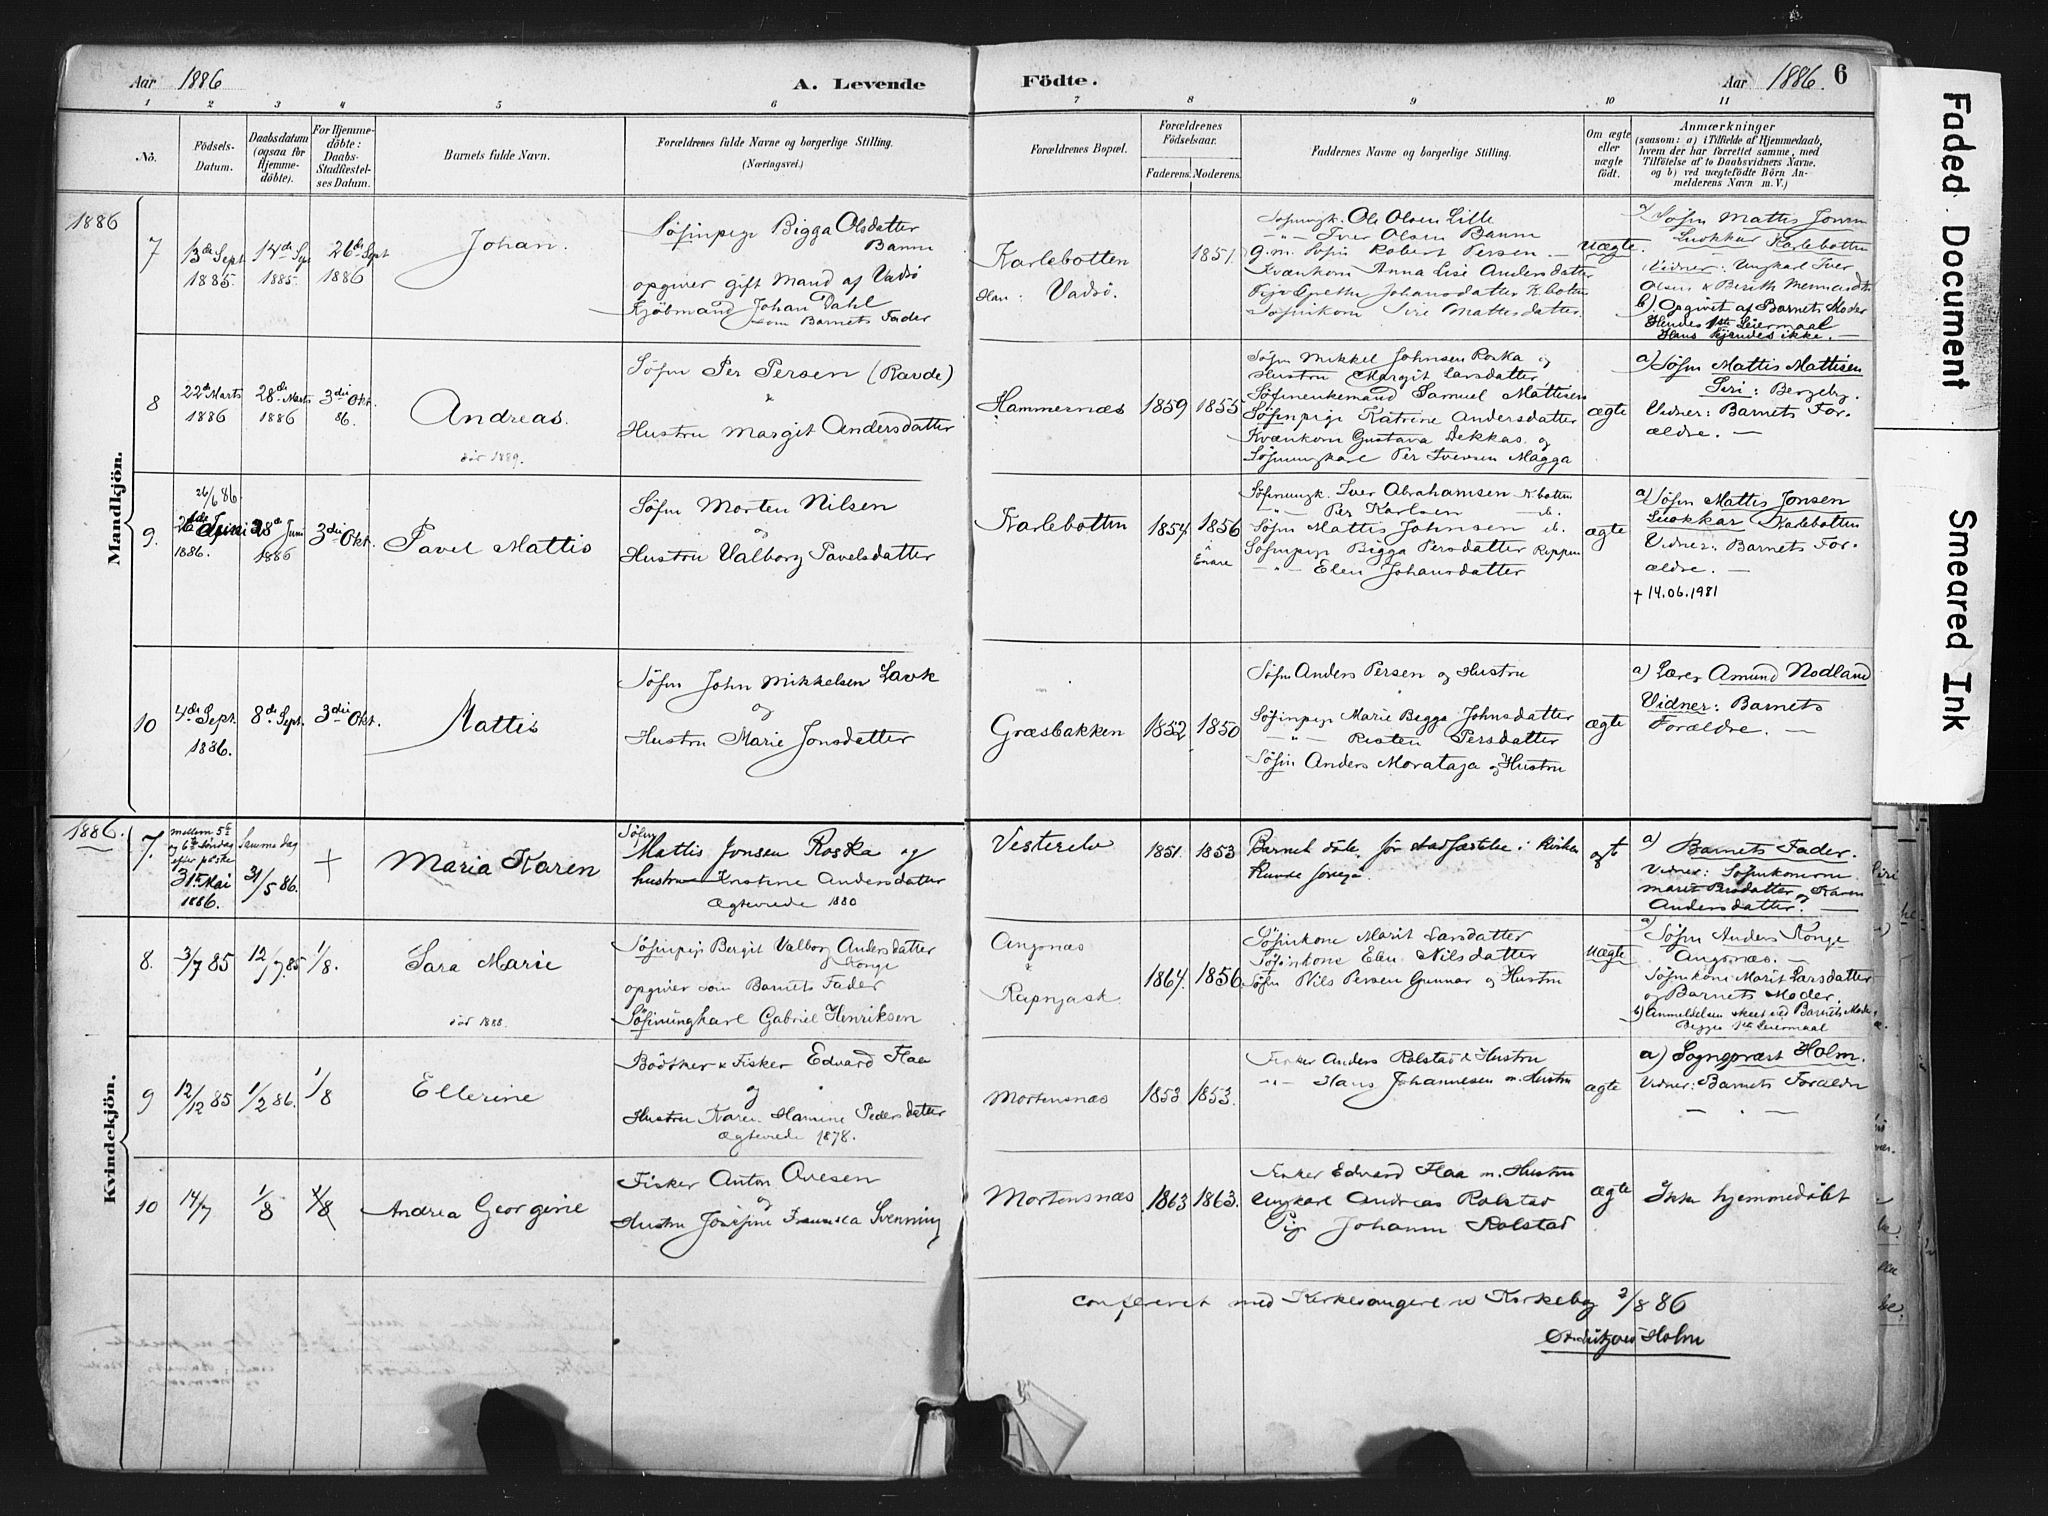 Aar 1886
A. Levende
Födte.
Aar 1886. 6
1 2 3 4 5 6 7 8 9 10 11
No.
Födsels-
Datum.
Daabsdatum
(ogsaa for
Hjemme-
döbte).
For Hjemme-
döbte:
Daabs-
Stadfæstel-
ses Datum.
Barnets fulde Navn.
Forældrenes fulde Navne og borgerlige Stilling.
(Næringsvei.)
Forældrenes Bopæl.
Forældrenes
Födselsaar.
Faderens. Moderens.
Faddernes Navne og borgerlige Stilling.
Om ægte
eller
uægte
födt.
Anmærkninger
(saasom: a) i Tilfælde af Hjemmedaab,
hvem der har forrettet samme, med
Tilföielse af to Daabsvidners Navne,
og b) ved uægtefödte Börn An-
melderens Navn m. V.)
Mandkjön.
1886
7
13de Sept
1885.
14de Sept
1885.
26de Sept
1886
Johan.
Søfinpige Bigga Olsdatter
Banne
opgiver gift Mand af Vadsø
Kjøbmand Johan Dahl
som Barnets Fader
Karlebotten
Han: Vadsø.
1851.
Søfinungk. Ole Olsen Lille
-"- Iver Olsen Banne
g.m. Søfin Robert Persen
Kvænkone Anna Lise Andersdatter
Pige Grethe Johansdatter K.botn
Søfinkone Siri Mattisdatter
Uægte.
a) Søfin Mattis Jonsen
Luokkar Karlebotten
Vidner: Ungkarl Iver
Olsen & Berith
b) Opgivet af Barnets Moder
Hendes 1ste Leiermaal
Hans kjendes ikke. —
8
22de Marts
1886
28de Marts
1886
3die Okt.
86.
Andreas.
død 1889.
Søfin Per Persen (Ravde)
&
Hustru Margit Andersdatter
Hammernæs
1859
1855
Søfin Mikkel Johnsen Roska og
Hustru Margit Larsdatter
Søfinenkemand Samuel Mattisen
Søfinpige Katrine Andersdatter
Kvænkone Gustava Dekkas og
Søfinungkarl Per Iversen Magga
ægte
a) Søfin Mattis Mattisen
Siri: Bergeby.
Vidner: Barnets For-
ældre. —
9.
26/6 86.
Juni
1886.
28de Juni
1886
3die Okt.
Pavel Mattis
Søfin Morten Nilsen
og
Hustru Valborg Pavelsdatter
Karlebotten
1857.
1856
i
Enare
Søfinungk. Iver Abrahamsen K.botten
-"- Per Karlsen — ib.
Søfin Mattis Johnsen ib.
Søfinpige Bigga Persdatter Reppen
-"- Elen Johansdatter
ægte
a) Søfin Mattis Jonsen
Luokkar Karlebotten
Vidner: Barnets For-
ældre. —
† 14.06.1981
10
4de Sept.
1886.
8de Sept.
3die Okt.
Mattis
Søfin John Mikkelsen Lavk
og
Hustru Marie Jonsdatter
Græsbakken
1852
1850
Søfin Anders Persen og Hustru
Søfinpige Marie Bigga Johnsdatter
-"- Risten Persdatter
Søfin Anders Morataja og Hustru
ægte
a) Lærer Amund Nodland
Vidner: Barnets
Forældre. —
Kvindekjön.
1886.
7.
mellem 5te
og 6te Søndag
efter påske
31te Mai
1886.
Samme dag
31/5 86.
+
Maria Karen
Søfin
Mattis Jonsen Roska og
hustru Kristine Andersdatter
Ægteviede 1880
Vesterelv
1851.
1853
Barnet døde før stadfæstelse i Kirken
kunde foregå.
ægt
a) Barnets Fader.
Vidner: Søfinkonerne
Marit og Karen
Andersdatter. —
8.
3/7 85
12/7 85
1/8.
Sara Marie
død 1888.
Søfinpige Bergit Valborg Andersdatter
Konge
opgiver som Barnets Fader
Søfinungkarl Gabriel Henriksen
Angsnæs
&
Reipnjask.
1864.
1856.
Søfinkone Marit Larsdatter
Søfinkone Elen Nilsdatter
Søfin Nils Persen Gunnar og Hustru
uægte
a) Søfin Anders Konge
Angsnæs. —
Søfinkone Marit Larsdatter
og Barnets Moder.
b) Anmeldelsen skeet ved Barnets Moder
Begges 1ste Leiermaal
9
12/12 85
1/2 86.
1/8
Ellerine
Bödker & Fisker Edvard Flaa
og
Hustru Karen Hamine Pedersdatter
Ægteviede 1878.
Mortensnæs
1853
1853.
Fisker Anders Rolstad & Hustru
-"- Hans Johannesen m. Hustru
ægte
a) Sognepræst Holm.
Vidner: Barnets Forældre
10
14/7
1/8
1/8
Andrea Georgine
Fisker Anton Ovesen
og
Hustru Josefine Fransiska Svenning
Mortensnæs
1863
1863.
Fisker Edvard Flaa m. Hustru
Ungkarl Andreas Rolstad
Pige Johanne Rolstad
ægte
Ikke hjemmedøbt
Confereret med Kirkesangeren Kirkeby 2/8 86
Holm
Faded Document
Smeared Ink